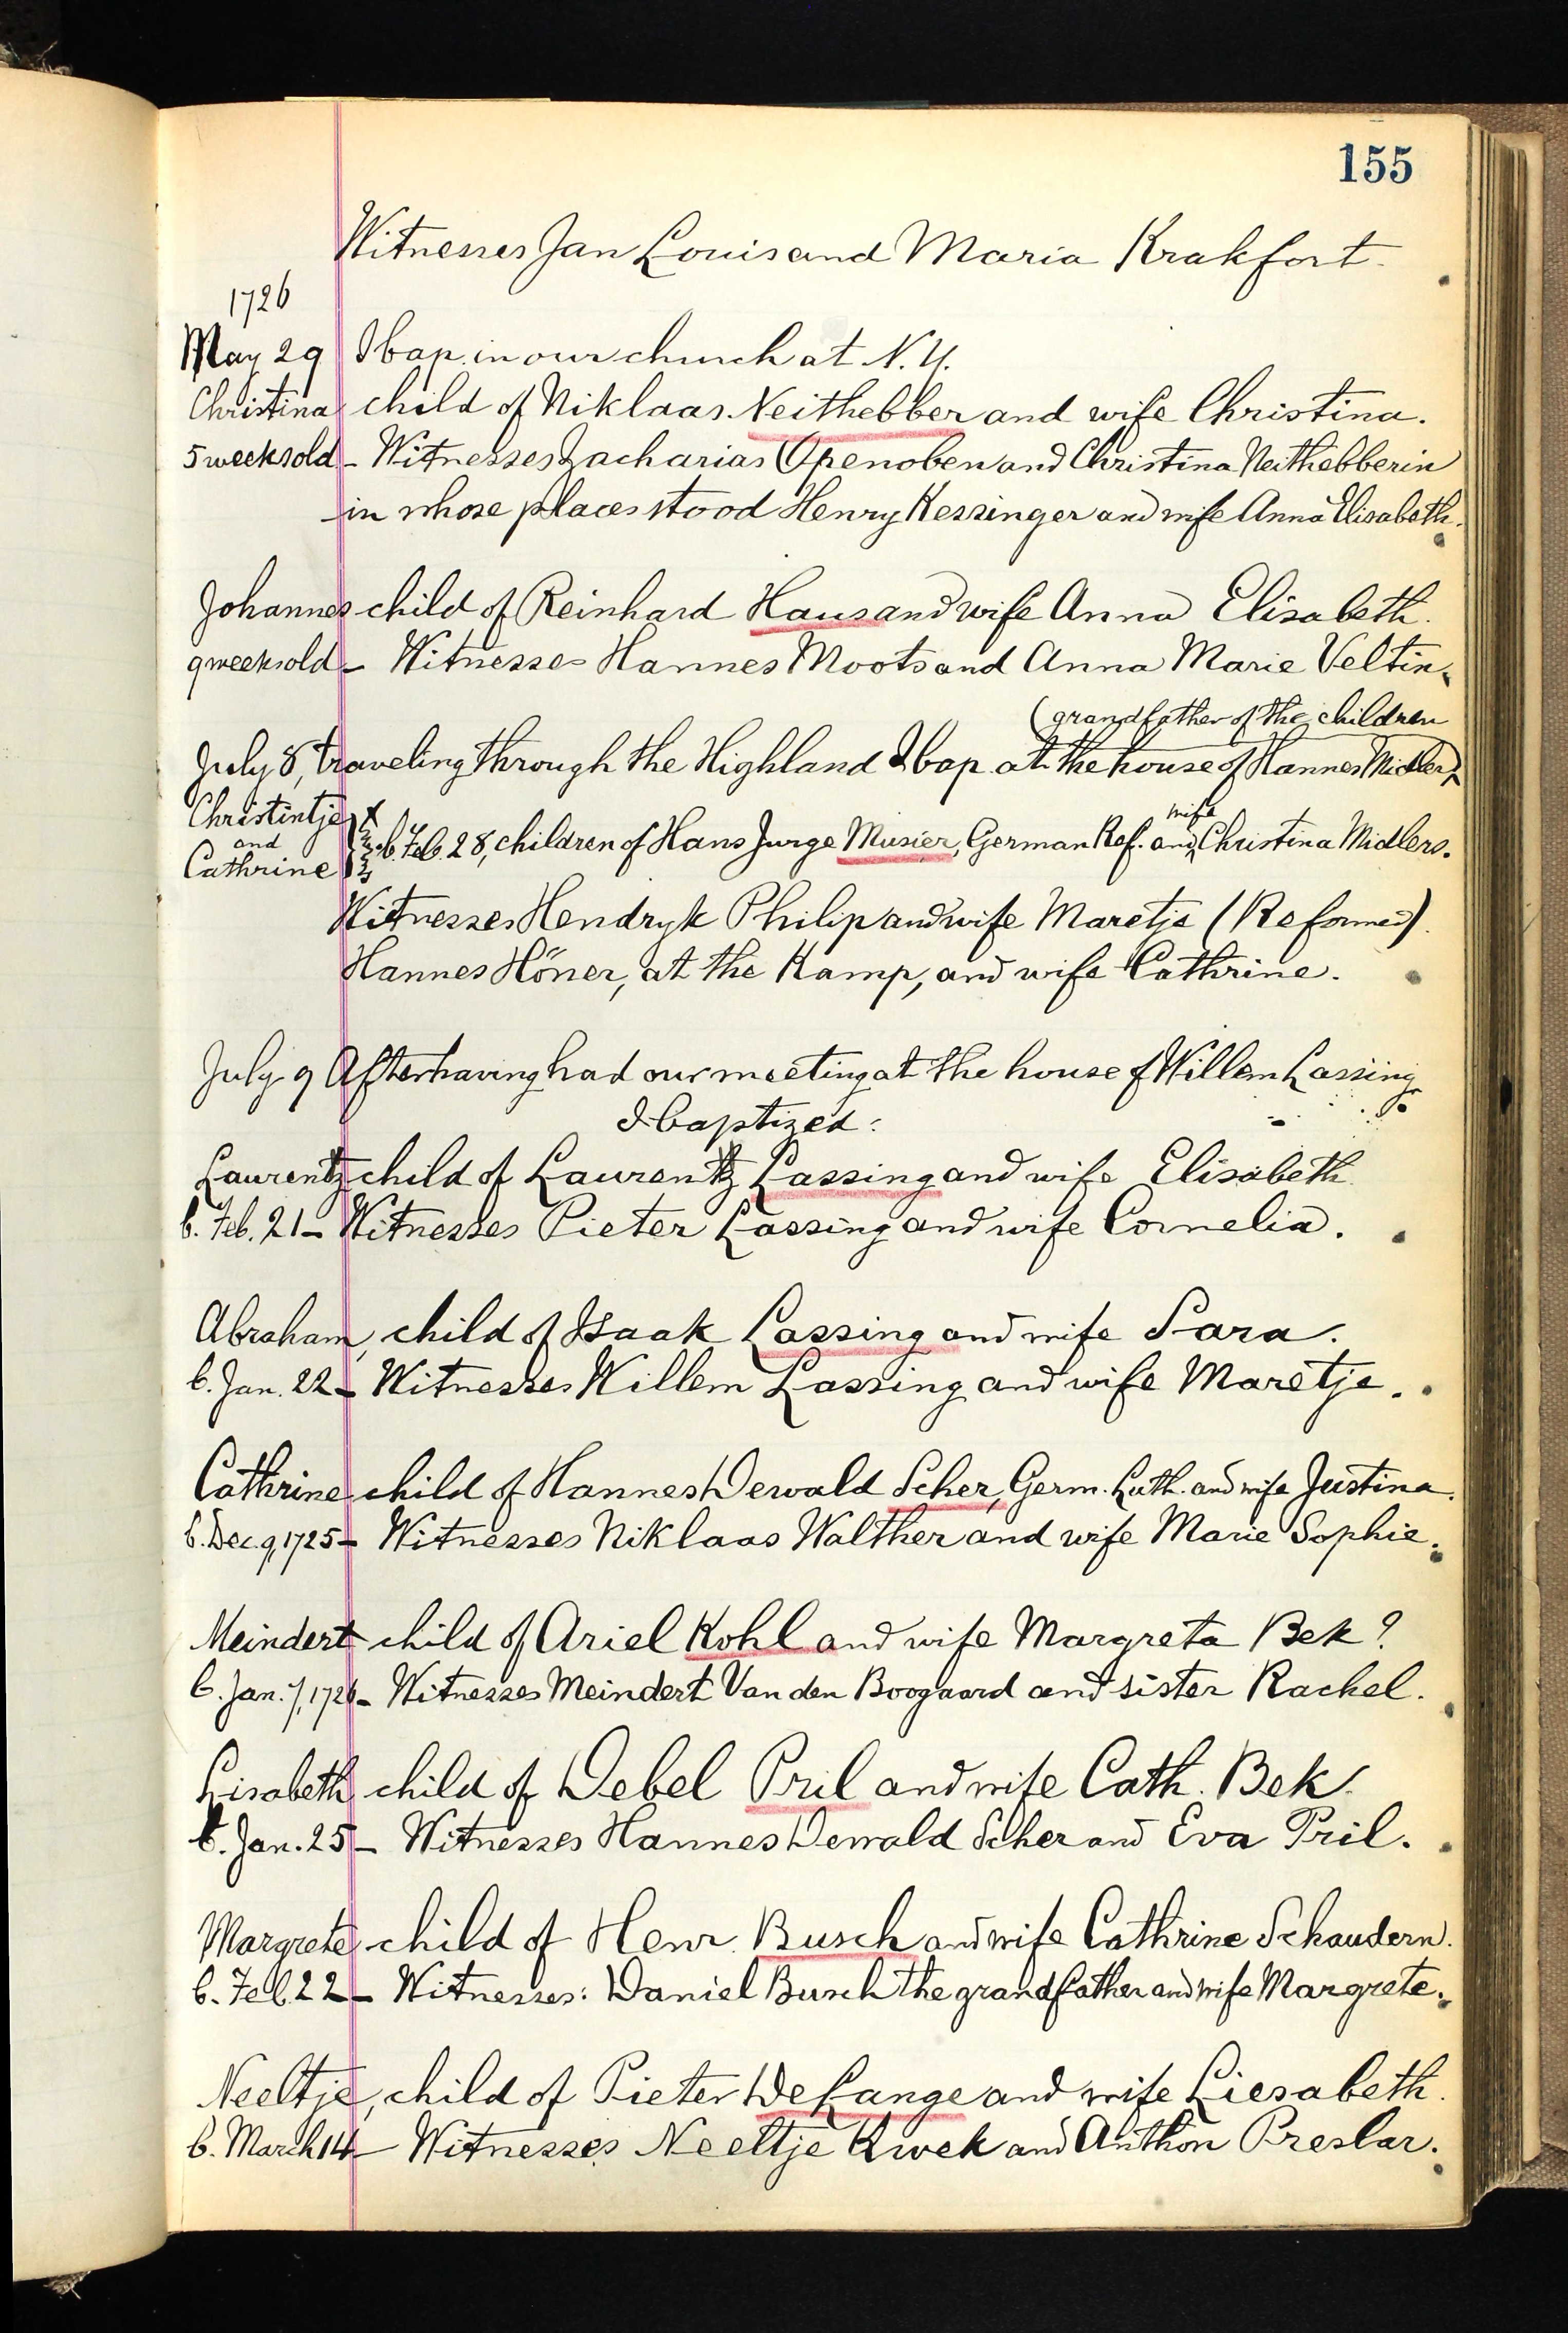 155
Witnesses Jan Louis and Maria Krakfort.
1726
May 29 I bap. in our church at N. Y.
Christina child of Niklaas Neithebber and wife Christina.
5 weeks old - Witnesses Zacharias Openoben and Christina Neithebberin
in whose places stood Henry Kessinger and wife Anna Elisabeth.
Johannes child of Reinhard Haus and wife Anna Elisabeth.
9 weeks old - Witnesses Hannes Moots and Anna Marie Veltin.
(grandfather of the children
July 8, traveling through the Highland I bap. at the house of Hannes Midler)
Christintje
and
Cathrine
wife
b. Feb. 28, children of Hans Jurge Musier, German Ref. and Christina Midlers.
Witnesses Hendryk Philip and wife Maretje (Reformed).
Hannes Höner, at the Kamp, and wife Cathrine.
July 9 After having had our meeting at the house of Willem Lassing
I baptized:
Laurentz child of Laurentz Lassing and wife Elisabeth.
b. Feb. 21 - Witnesses Pieter Lassing and wife Cornelia.
Abraham, child of Isaak Lassing and wife Sara.
b. Jan. 22 - Witnesses Willem Lassing and wife Maretje.
Cathrine child of Hannes Dewald Scher, Germ. Luth. and wife Justina.
b. Dec. 9, 1725 - Witnesses Niklaas Walther and wife Marie Sophie.
Meindert child of Ariel Kohl and wife Margreta Bek?
b. Jan. 7, 1726 - Witnesses Meindert Van den Boogaard and sister Rachel.
Lisabeth child of Debel Pril and wife Cath. Bek.
b. Jan. 25 - Witnesses Hannes Dewald Scher and Eva Pril.
Margrete child of Henr. Busch and wife Cathrine Schaudern.
b. Feb. 22 - Witnesses: Daniel Busch the grandfather and wife Margrete.
Neeltje, child of Pieter De Lange and wife Liesabeth.
b. March 14 - Witnesses Neeltje Kwek and Anthon Preslar.